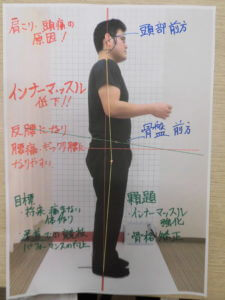 肩こり・頭痛の
原因！
頭部前方
インナーマッスル
低下!!
反腰になり
腰痛・ギックリ腰に
なりやすい
骨盤前方
目標
・将来痛まない
体作り
パフォーマンス
課題
・インナーマッスル
強化
・骨格矯正